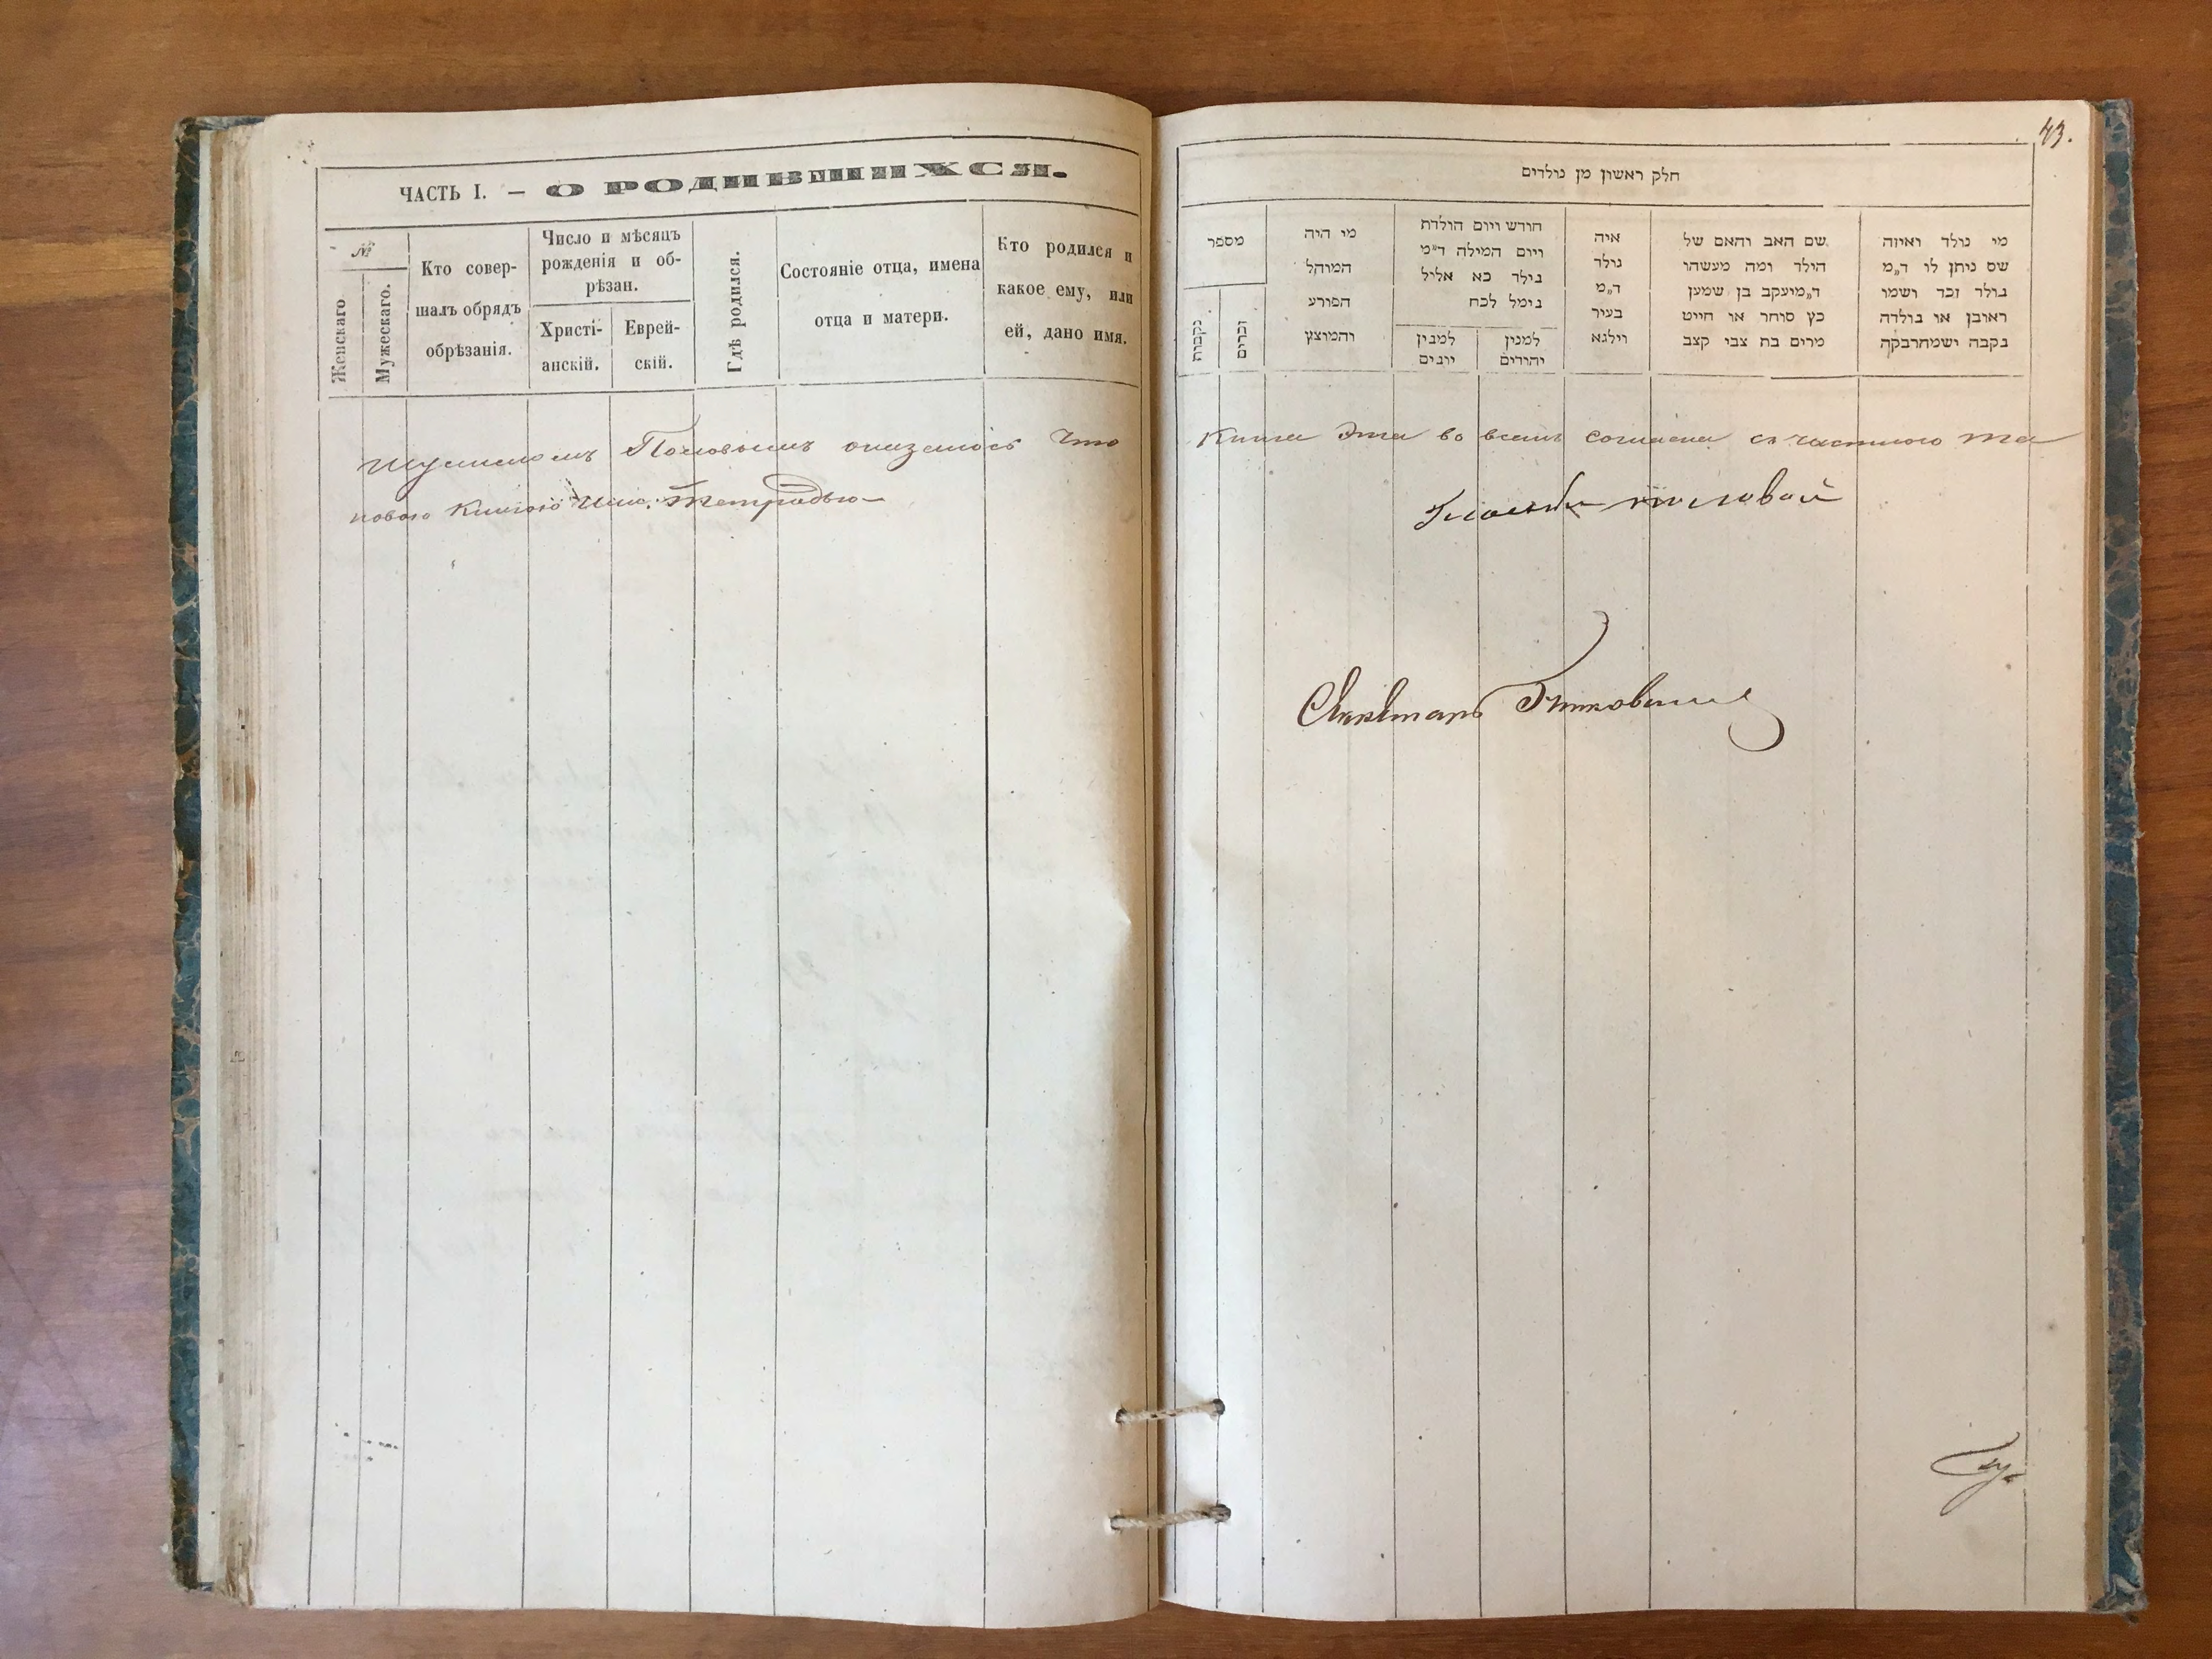 ЧАСТЬ I. — О РОДИВШИХСЯ.
№
Женскаго
Мужескаго.
Кто совер-
шалъ обрядъ
обрѣзанія.
Число и мѣсяцъ
рожденія и об-
рѣзан.
Христі-
анскій.
Еврей-
скій.
Гдѣ родился.
Состояніе отца, имена
отца и матери.
Кто родился и
какое ему, или
ей, дано имя.
оказалось что
книгою тетрадью
43.
חלק ראשון מן נולדים
מי נולד ואיזה
שם ניתן לו ד״מ
נולד זכר ושמו
ראובן או נולדה
נקבה ושמה רבקה
שם האב והאם של
הילד ומה מעשהו
ד״מ יעקב בן שמעון
כץ סוחר או חייט
מרים בת צבי קצב
איה
נולד
ד״מ
בעיר
ווילנא
חודש ויום הולדת
ויום המילה ד״מ
נולד כא אליל
נימל לכח
למנין
יהודים
למנין
יונים
מי היה
המוהל
הפורע
והמוצץ
מספר
זכרים
נקבות
Книга эта во всемъ согласна съ